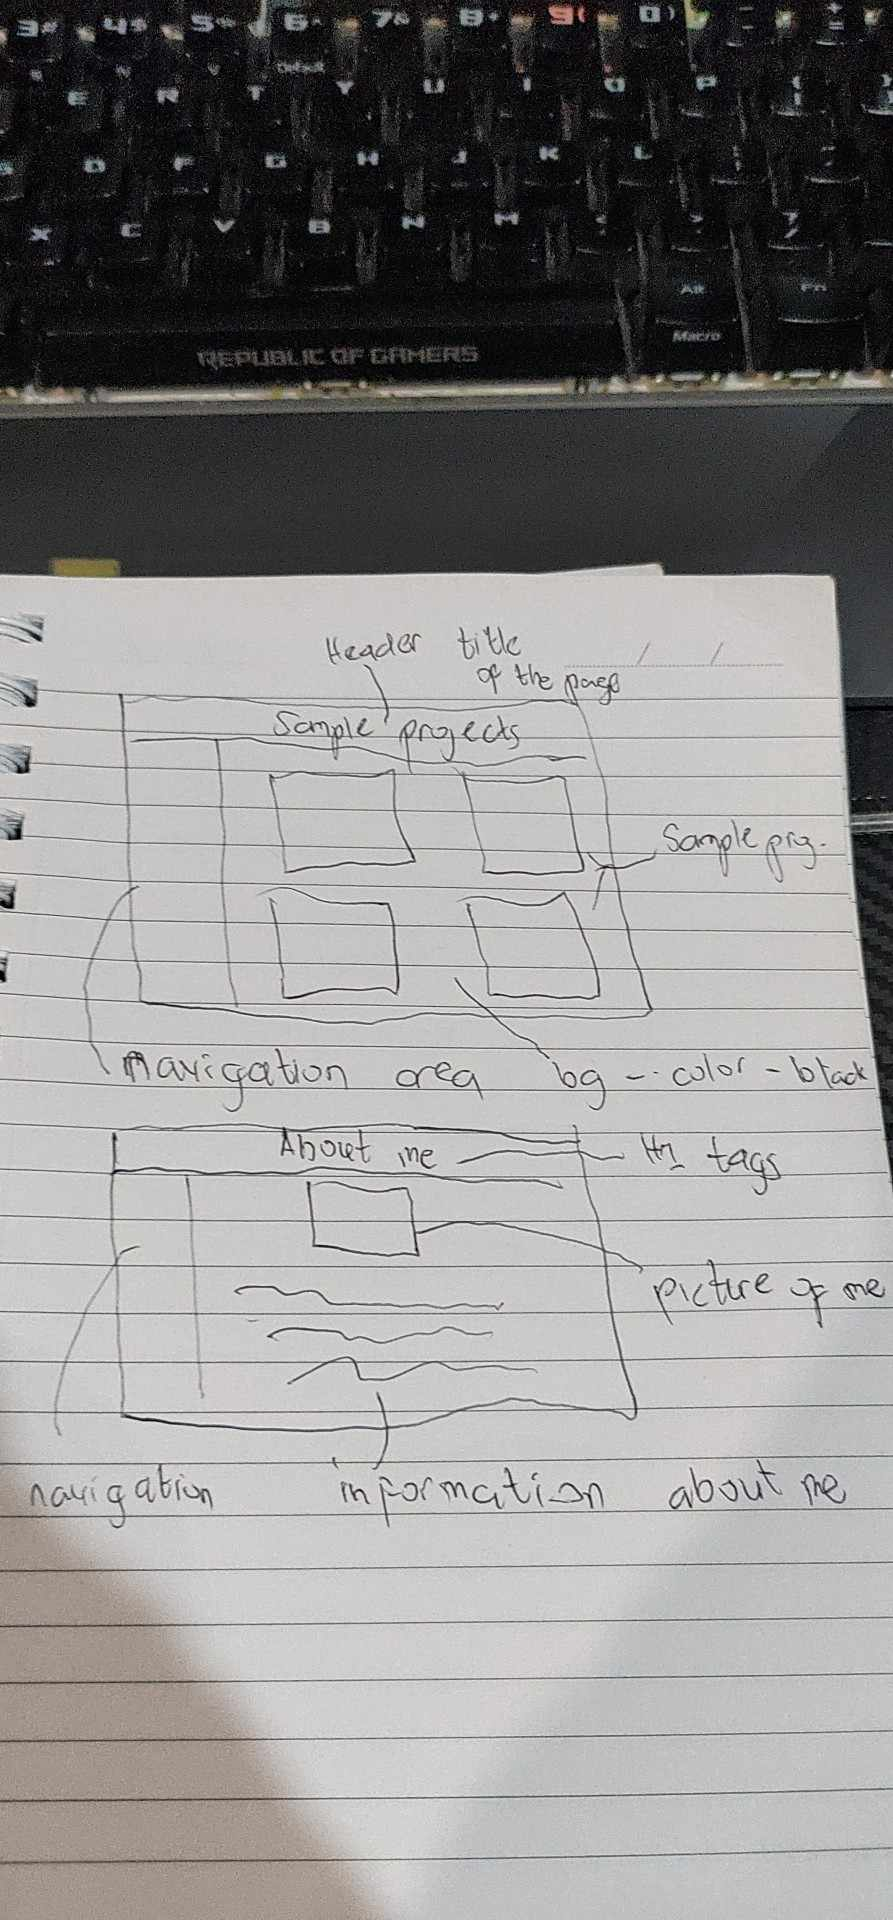 3# 4$ 5% 6^ 7& 8* 9( 0)
Default
E R T Y U I O P
D F G H J K L
X C V B N M
Alt Fn
Macro
REPUBLIC OF GAMERS
Header title
of the page
/ /
Sample projects
Sample prg.
navigation area bg - color - black
About me
H1 tags
picture of me
navigation information about me